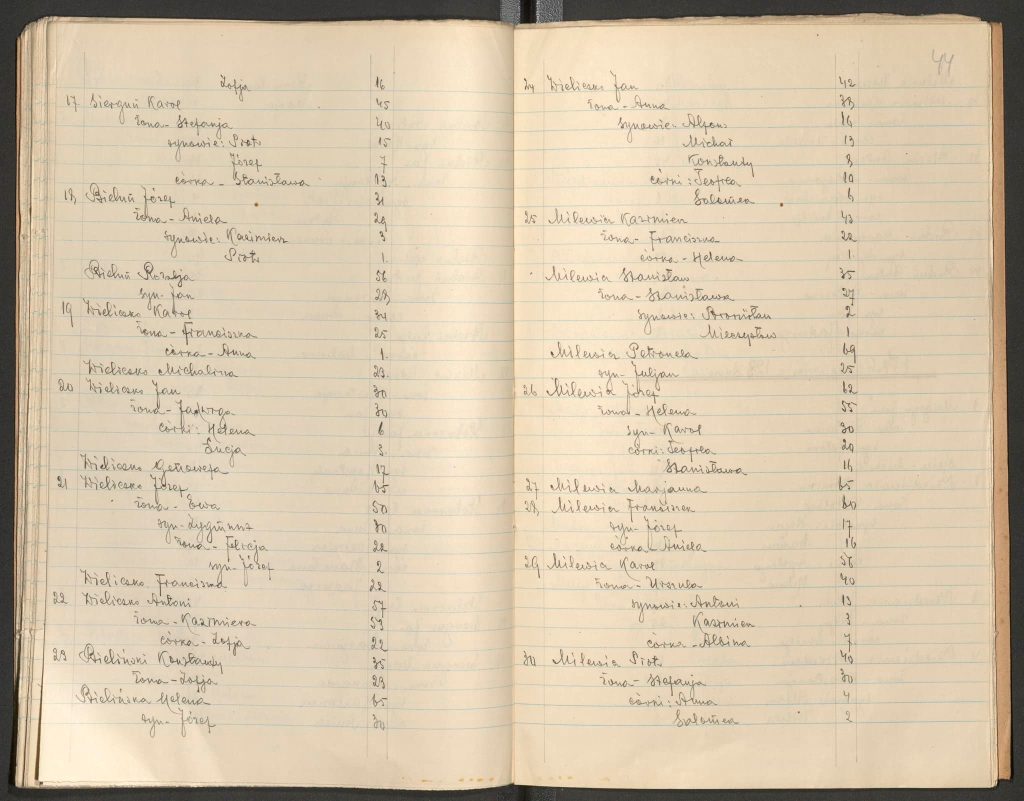 Zofja 16
17 Siergiú Karol 45
żona - Stefanja 40
synowie: Piotr 15
Józef 7
córka - Stanisława 13
18 Józef 31
żona - Aniela 29
synowie: Kazimierz 3
Piotr 1.
Rozalja 56
syn - Jan 28
19 Wieliczko Karol 34
żona - Franciszka 25
córka - Anna 1.
Wieliczko Michalina 23
20 Wieliczko Jan 30
żona - Jadwiga 30
córki: Helena 6
Łucja 3
Wieliczko Genowefa 17
21 Wieliczko Józef 65
żona - Ewa 50
syn - Zygmunt 30
żona - Felicja 22
syn - Józef 2
Wieliczko Franciszka 22
22 Wieliczko Antoni 57
żona - Kazimiera 53
córka - Zofja 22
23 Bieliński Konstanty 35
żona - Zofja 23
Bielińska Helena 65
syn - Józef 30
44
24 Wieliczko Jan 42
żona - Anna 38
synowie: Alfons 16
Michał 13
Konstanty 8
córki: Teofila 10
Salomea 6
25 Milewicz Kazimierz 43
żona - Franciszka 22
córka - Helena 1
Milewicz Stanisław 35
żona - Stanisława 27
synowie: Bronisław 2
Mieczysław 1
Milewicz Petronela 69
syn - Juljan 25
26 Milewicz Józef 62
żona - Helena 55
syn - Karol 30
córki: Teofila 20
Stanisława 16
27 Milewicz Marjanna 65
28 Milewicz Franciszek 60
syn - Józef 17
córka - Aniela 16
29 Milewicz Karol 56
żona - Urszula 40
synowie: Antoni 13
Kazimierz 3
córka - Albina 7
30 Milewicz Piotr 40
żona - Stefanja 30
córki: Anna 4
Salomea 2